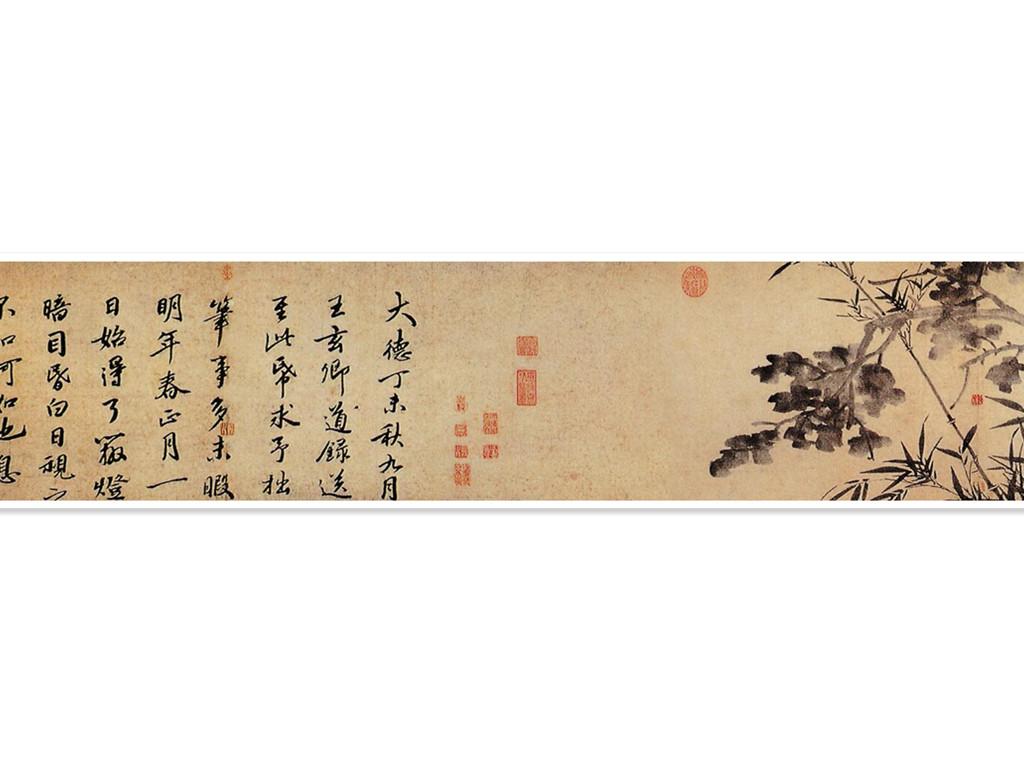 大德丁未秋九月
王玄卿道錄送
至此帋求予拙
筆事多未暇
明年春正月一
日始得了籢燈
暗目昏白日視